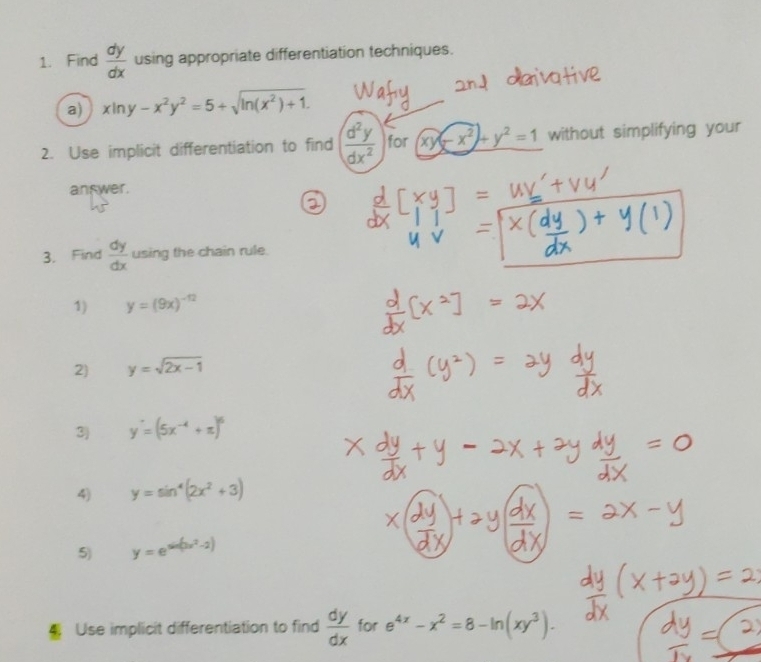 1. Find dy/dx using appropriate differentiation techniques.
Wafiy
2nd derivative
a) xlny − x²y² = 5 + √(ln(x²)+1).
2. Use implicit differentiation to find d²y/dx² for xy − x² + y² = 1 without simplifying your
answer.
② d/dx [xy] = uv' + vu'
u v
= x(dy/dx) + y(1)
3. Find dy/dx using the chain rule.
1) y = (9x)⁻¹²
d/dx [x²] = 2x
2) y = √(2x−1)
d/dx (y²) = 2y dy/dx
3) y = (5x⁻⁴ + π)⁶
x dy/dx + y − 2x + 2y dy/dx = 0
4) y = sin⁴(2x² + 3)
x(dy/dx) + 2y(dx/dx) = 2x − y
5) y = e
dy/dx (x+2y) = 2
dy/dx = 2
4. Use implicit differentiation to find dy/dx for e⁴ˣ − x² = 8 − ln(xy³).